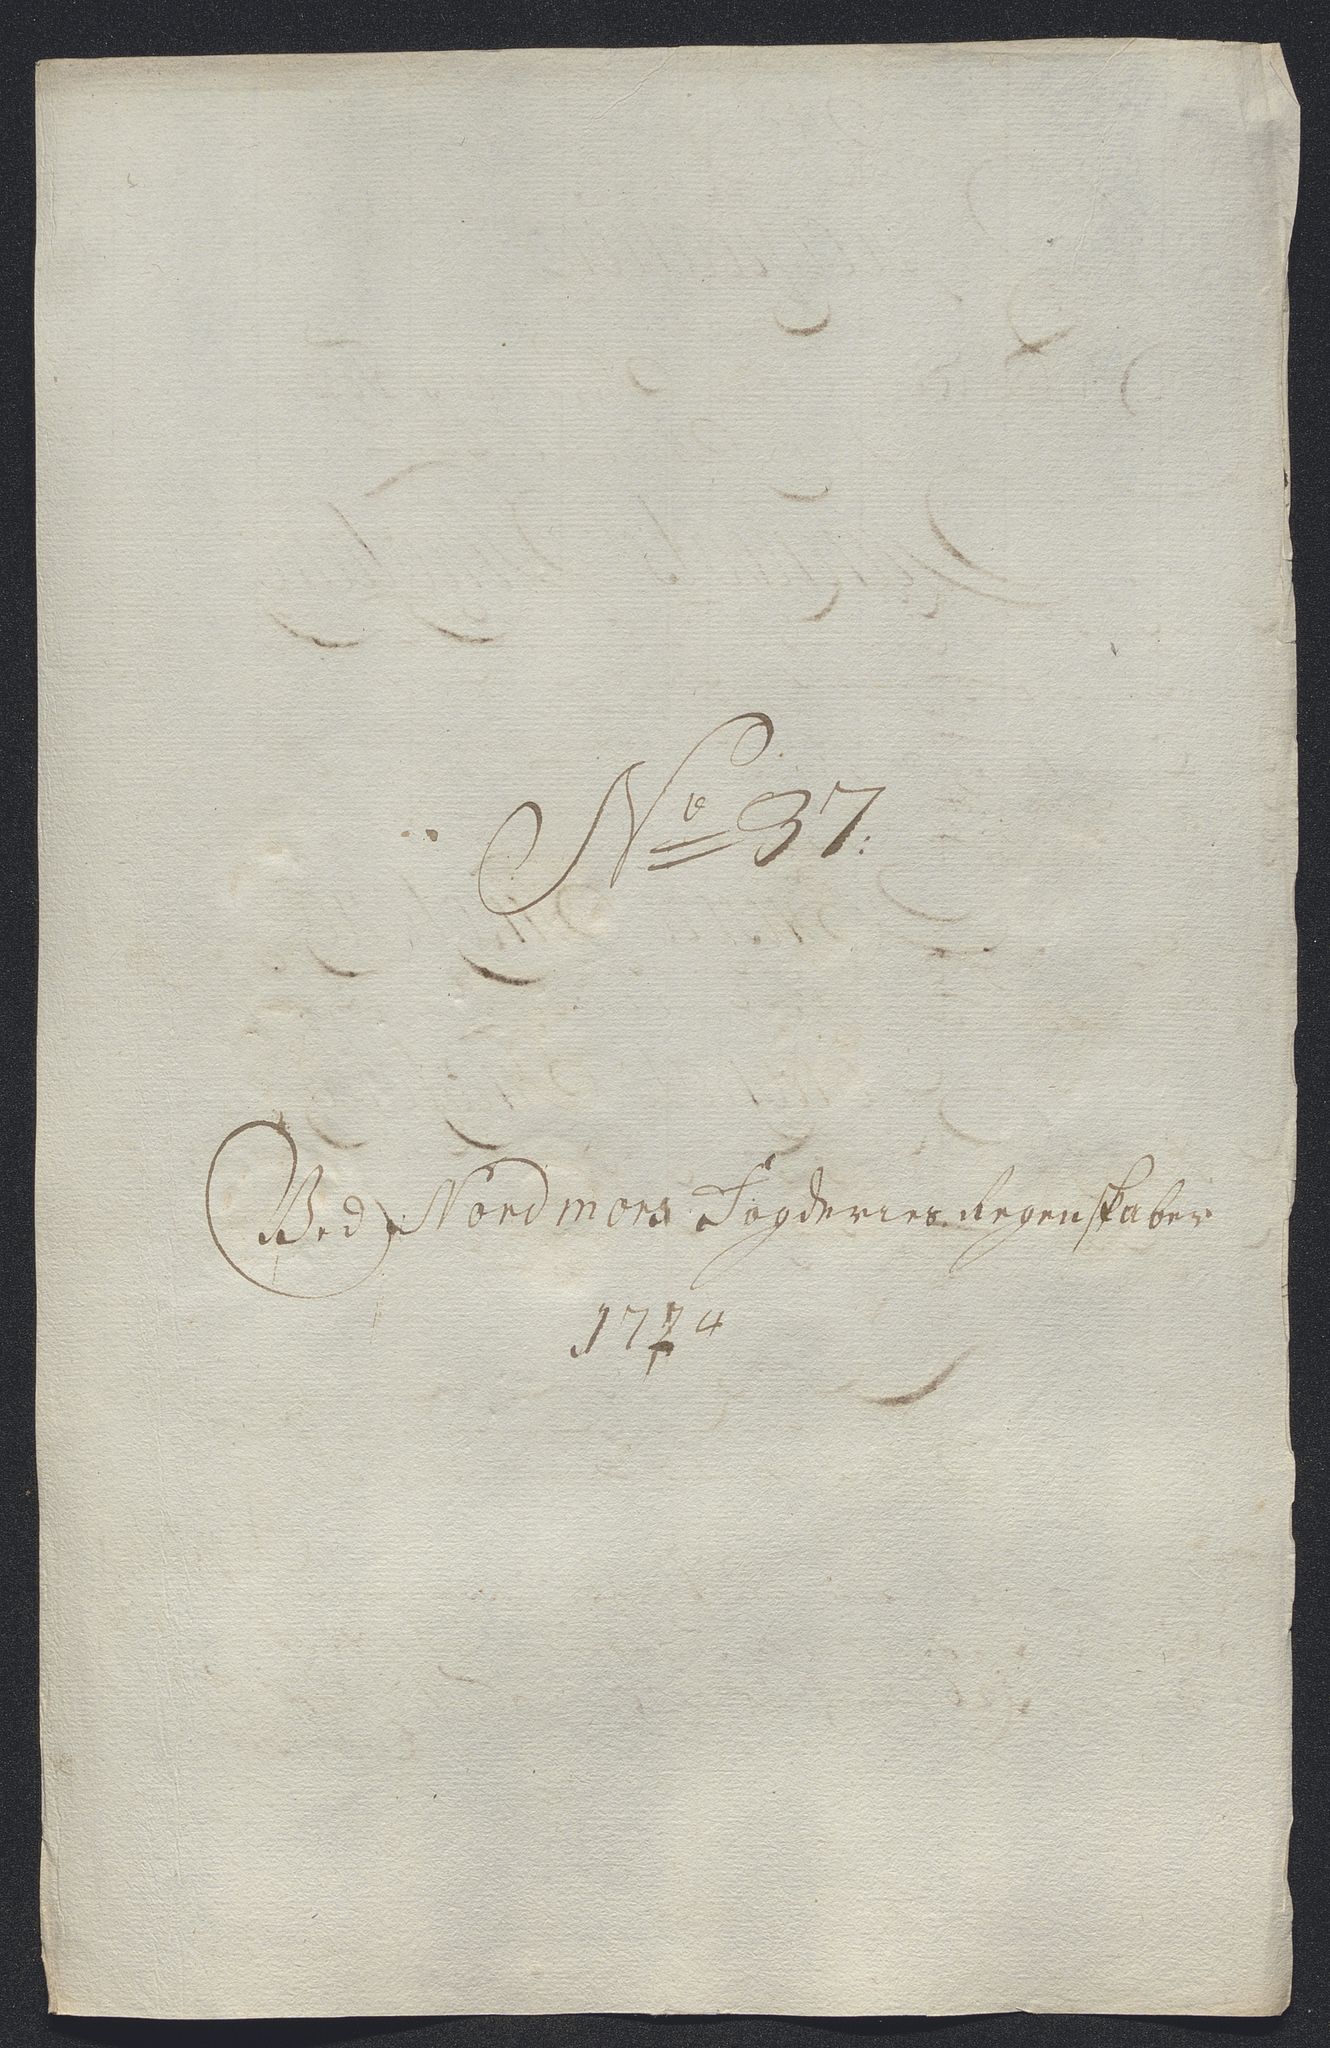 No 37:
Ved Nordmors Fogderies Regenskaber
1724